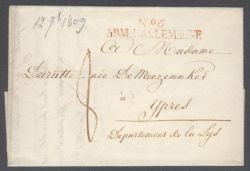 12 7bre 1809
No 6
ARM. ALLEMAGNE
A Madame
Darutte née De Meezemaker
8
à
Ypres
Departement de la Lys